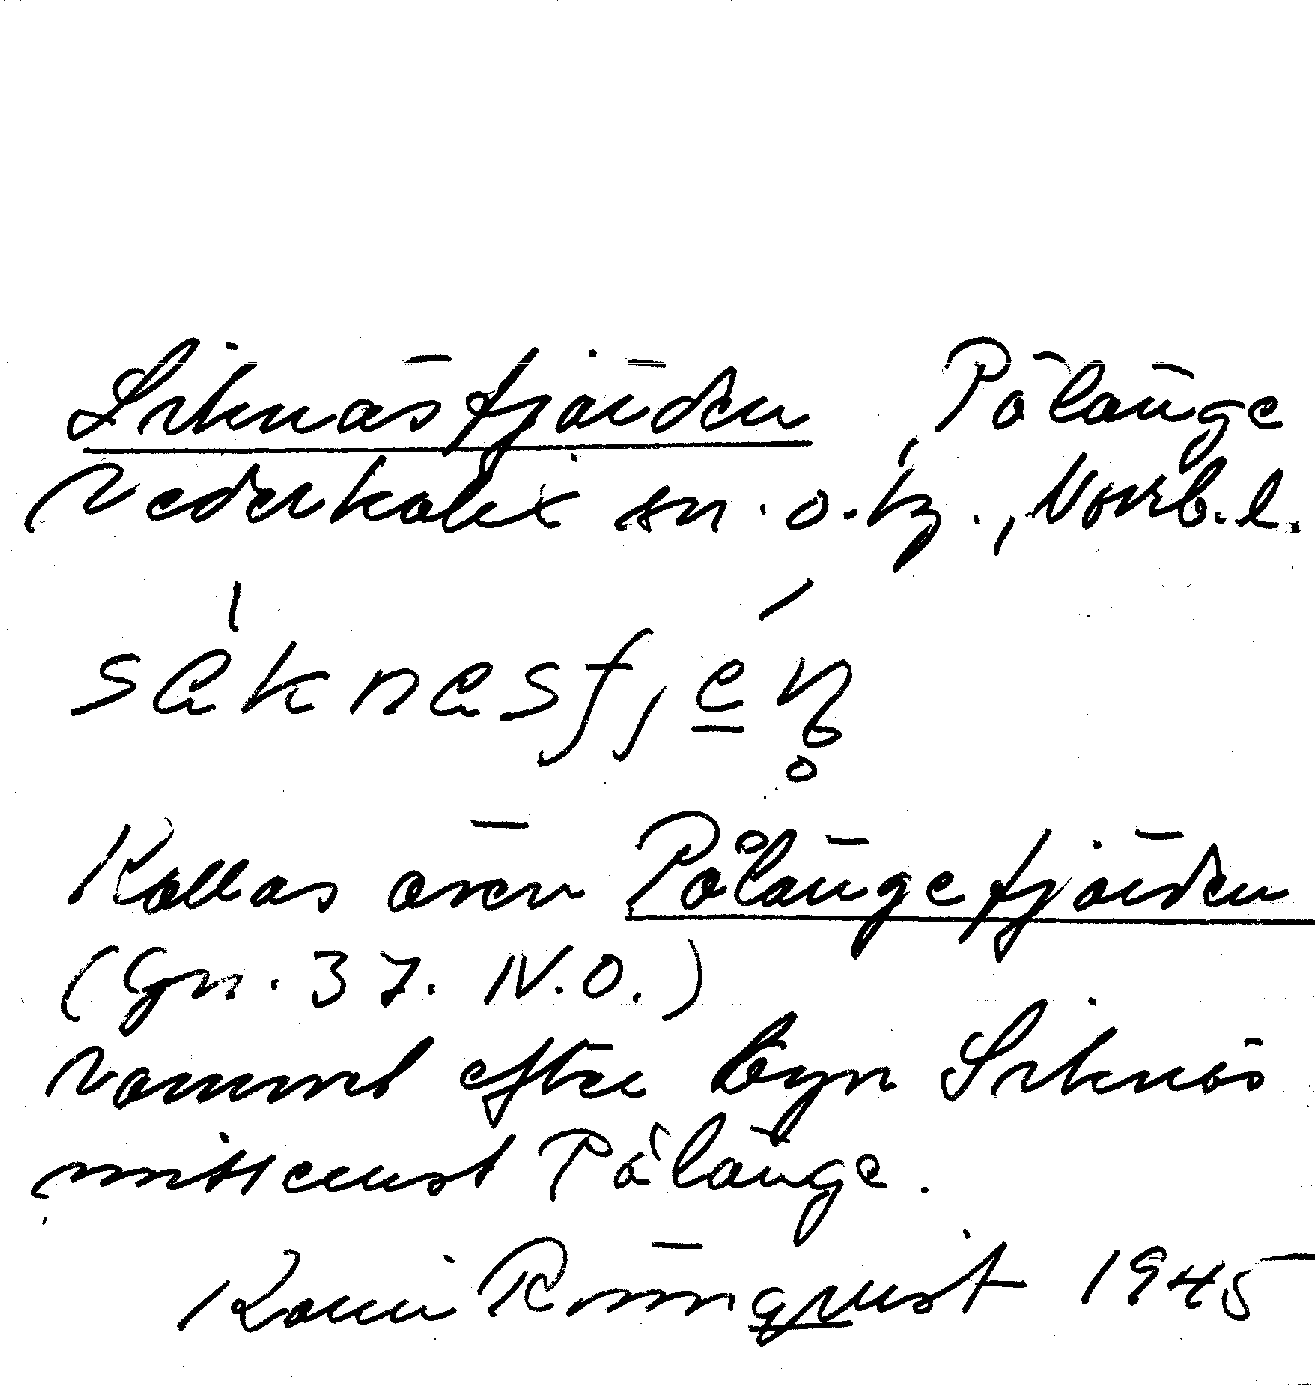 Siknäsfjärden, Pålänge
Nederkalix sn. o. tg., Norrb. l.
Kallas även Pålängefjärden
(Gn. 37. IV. O.)
namnet efter byn Siknäs
mittemot Pålänge.
Karin Rönnqvist 1945